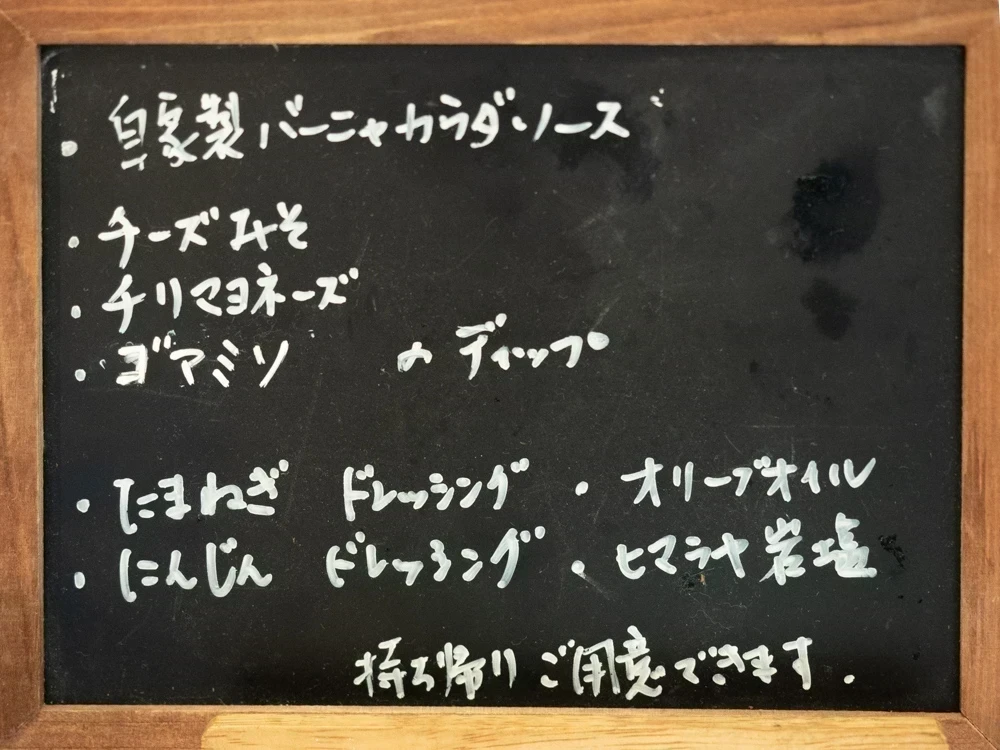 ・自家製バーニャカウダソース
・チーズみそ
・チリマヨネーズ
・ゴマミソ のディップ
・たまねぎ ドレッシング ・オリーブオイル
・にんじん ドレッシング ・ヒマラヤ岩塩
持ち帰りご用意できます.